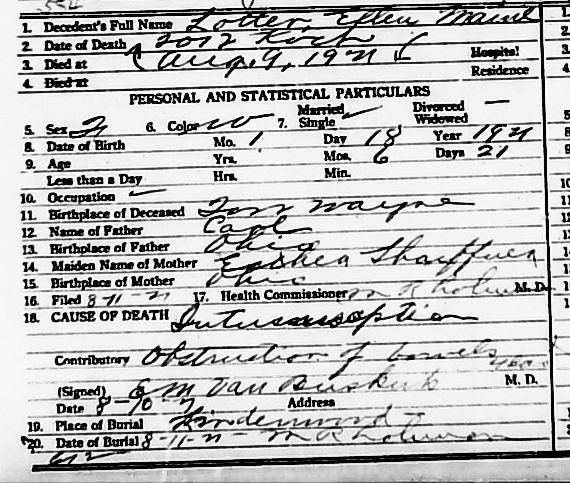 554
1. Decedent's Full Name Lotter, Ellen Maine
2. Date of Death 2012 Koch
3. Died at Aug 9, 1921 Hospital
4. Died at Residence
PERSONAL AND STATISTICAL PARTICULARS
5. Sex F 6. Color W 7. Married Single ✓ Divorced Widowed —
8. Date of Birth Mo. 1 Day 18 Year 1921
9. Age Yrs. Mos. 6 Days 21
Less than a Day Hrs. Min.
10. Occupation
11. Birthplace of Deceased Fort Wayne
12. Name of Father Carl
13. Birthplace of Father Ohio
14. Maiden Name of Mother
15. Birthplace of Mother Ohio
16. Filed 8-11-21 17. Health Commissioner M. D.
18. CAUSE OF DEATH Intussusception
Contributory Obstruction of bowels
(Signed) E M Van Buskirk M. D.
Date 8-10-21 Address
19. Place of Burial Lindenwood
20. Date of Burial 8-11-21
612